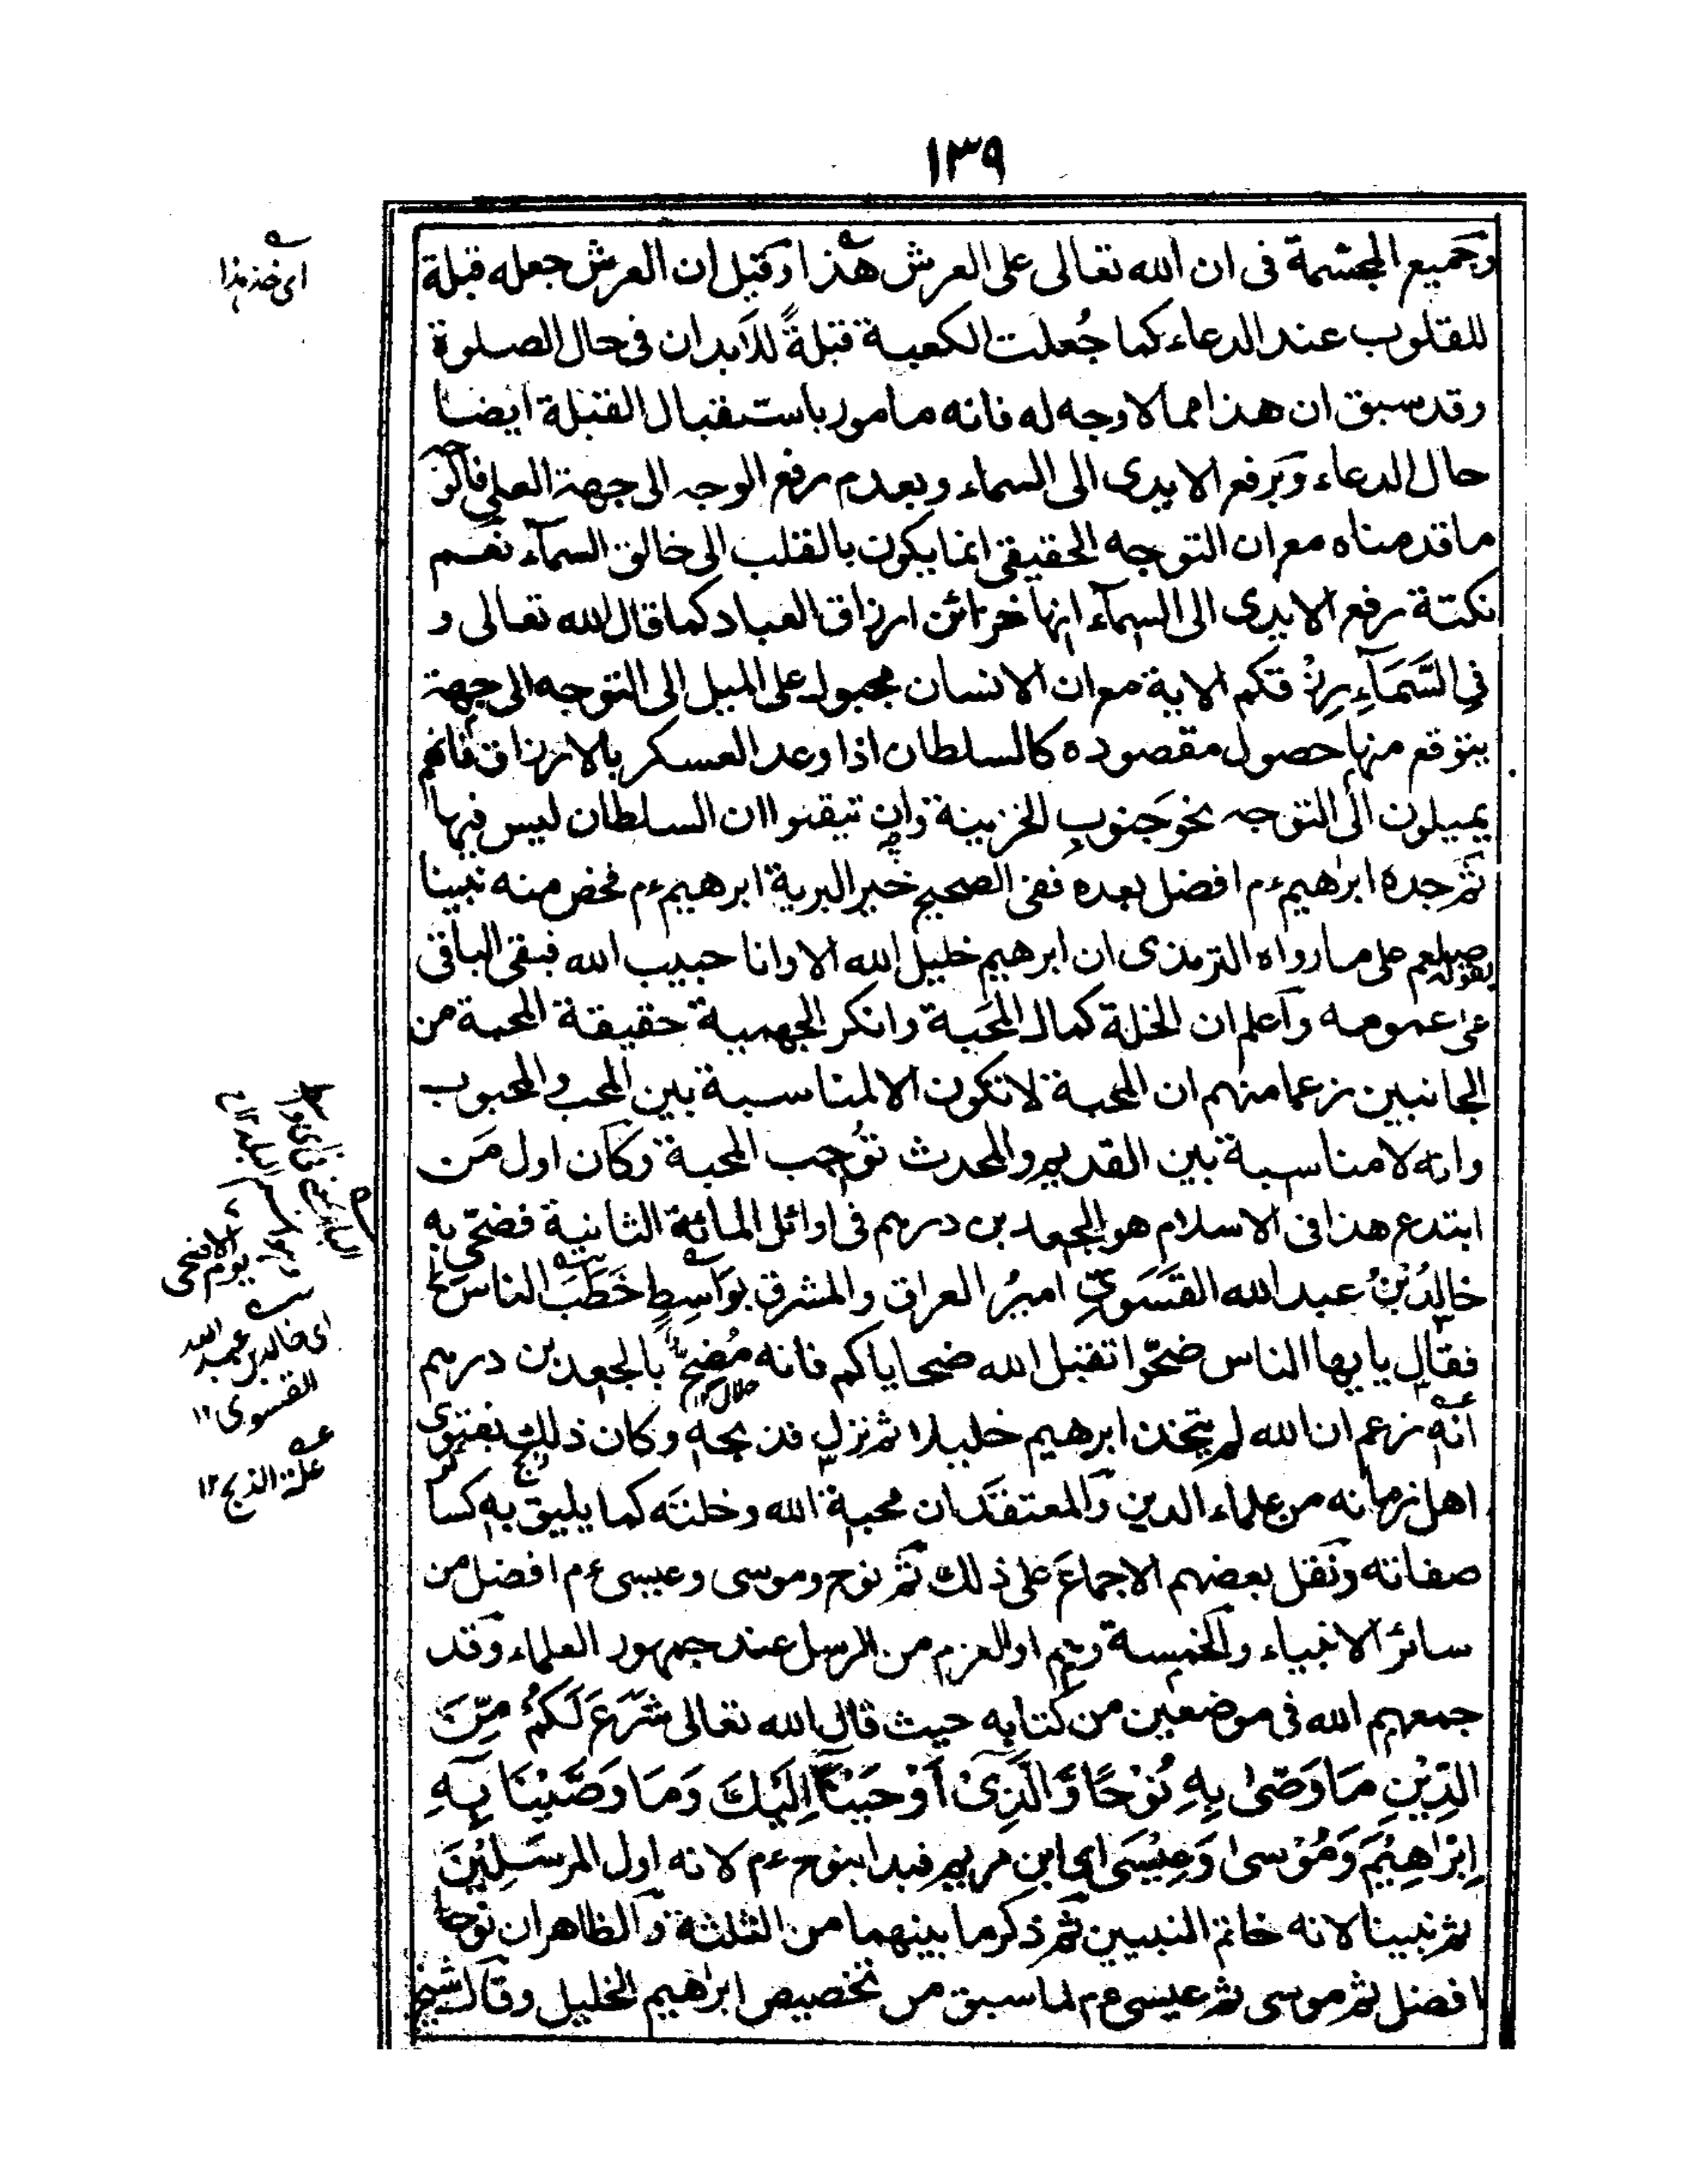 ١٣٩
وجميع المجسمة فى ان الله تعالى على العرش هذا وقيل ان العرش جعله قبلة
للقلوب عند الدعاء كما جُعلت الكعبة قبلةً للابدان فى حال الصلوة
وقد سبق ان هذا مما لا وجه له فانه مامور باستقبال القبلة ايضا
حال الدعاء وبرفع الايدى الى السماء وبعدم رفع الوجه الى جهة العلى فالوجه
ما قدمناه مع ان التوجه الحقيقى انما يكون بالقلب الى خالق السمآء نعم
نكتة رفع الايدى الى السمآء انها خزائن ارزاق العباد كما قال الله تعالى و
فِي السَّمَآءِ رِزْقكم الاية مع ان الانسان مجبول على الميل الى التوجه الى جهة
يتوقع منها حصول مقصوده كالسلطان اذا وعد العسكر بالارزاق فانهم
يميلون الى التوجه نحو جنوب الخزينة وان تيقنوا ان السلطان ليس فيها
ثم جده ابرٰهيم ع م افضل بعده ففى الصحيح خير البرية ابرهيم ع م فخص منه نبينا
صلعم بقوله على ما رواه الترمذى ان ابرهيم خليل الله الا وانا حبيب الله فبقى الباقى
على عمومه وآعلم ان الخلة كمال المحَبة وانكر الجهمية حقيقة المحبة من
الجانبين زعما منهم ان المحبة لا تكون الا لمناسبة بين المحب والمحبوب
وانه لا مناسبة بين القديم والمحدث تُوجب المحبة وكان اول مَن
ابتدع هذا فى الاسلام هو الجعد بن درهم فى اوائل المائة الثانية فضحّى به
خالدُ بْنُ عبد الله القَسَوىّ اميرُ العراق والمشرق بوَاسِطٍ خَطَبَ الناسَ
فقال يايها الناس ضحّوا تقبل الله ضحاياكم فانه مُضحٍّ بالجعد بن درهم
حلال
انه زعم ان الله لم يتخذ ابرهيم خليلا ثم نزل فذبحه وكان ذلك بفتوى
ذبح
اهل زمانه من علماء الدين وَالمعتقَد ان محبة الله وخلته كما يليق به كسائر
صفاته ونقل بعضهم الاجماعَ على ذلك ثم نوح وموسى وعيسى ع م افضل من
سائر الانبياء والخمسة وهم اولو العزم من الرسل عند جمهور العلماء وقد
جمعهم الله فى موضعين من كتابه حيث قال الله تعالى شَرَعَ لَكُمْ مِّنَ
الدِّيْنِ مَا وَصّٰى بِهٖ نُوْحًا وَّالَّذِىْ اَوْحَيْنَآ اِلَيْكَ وَمَا وَصَّيْنَا بِهٖ
اِبْرٰاهِيْمَ وَمُوْسىٰ وَعِيْسىَ اى ابن مريم فبدا بنوح ع م لانه اول المرسَلِيْنَ
ثم نبينا لانه خاتم النبيين ثم ذكر ما بينهما من الثلثة وَالظاهر ان نوحا
افضل ثم موسى ثم عيسى ع م لما سبق من تخصيص ابرٰهيم الخليل وقال شيخ
اى خذ هذا
يوم الاضحى
اى خالد بن عبد الله
القسوى ١٢
علة الذبح ١٢